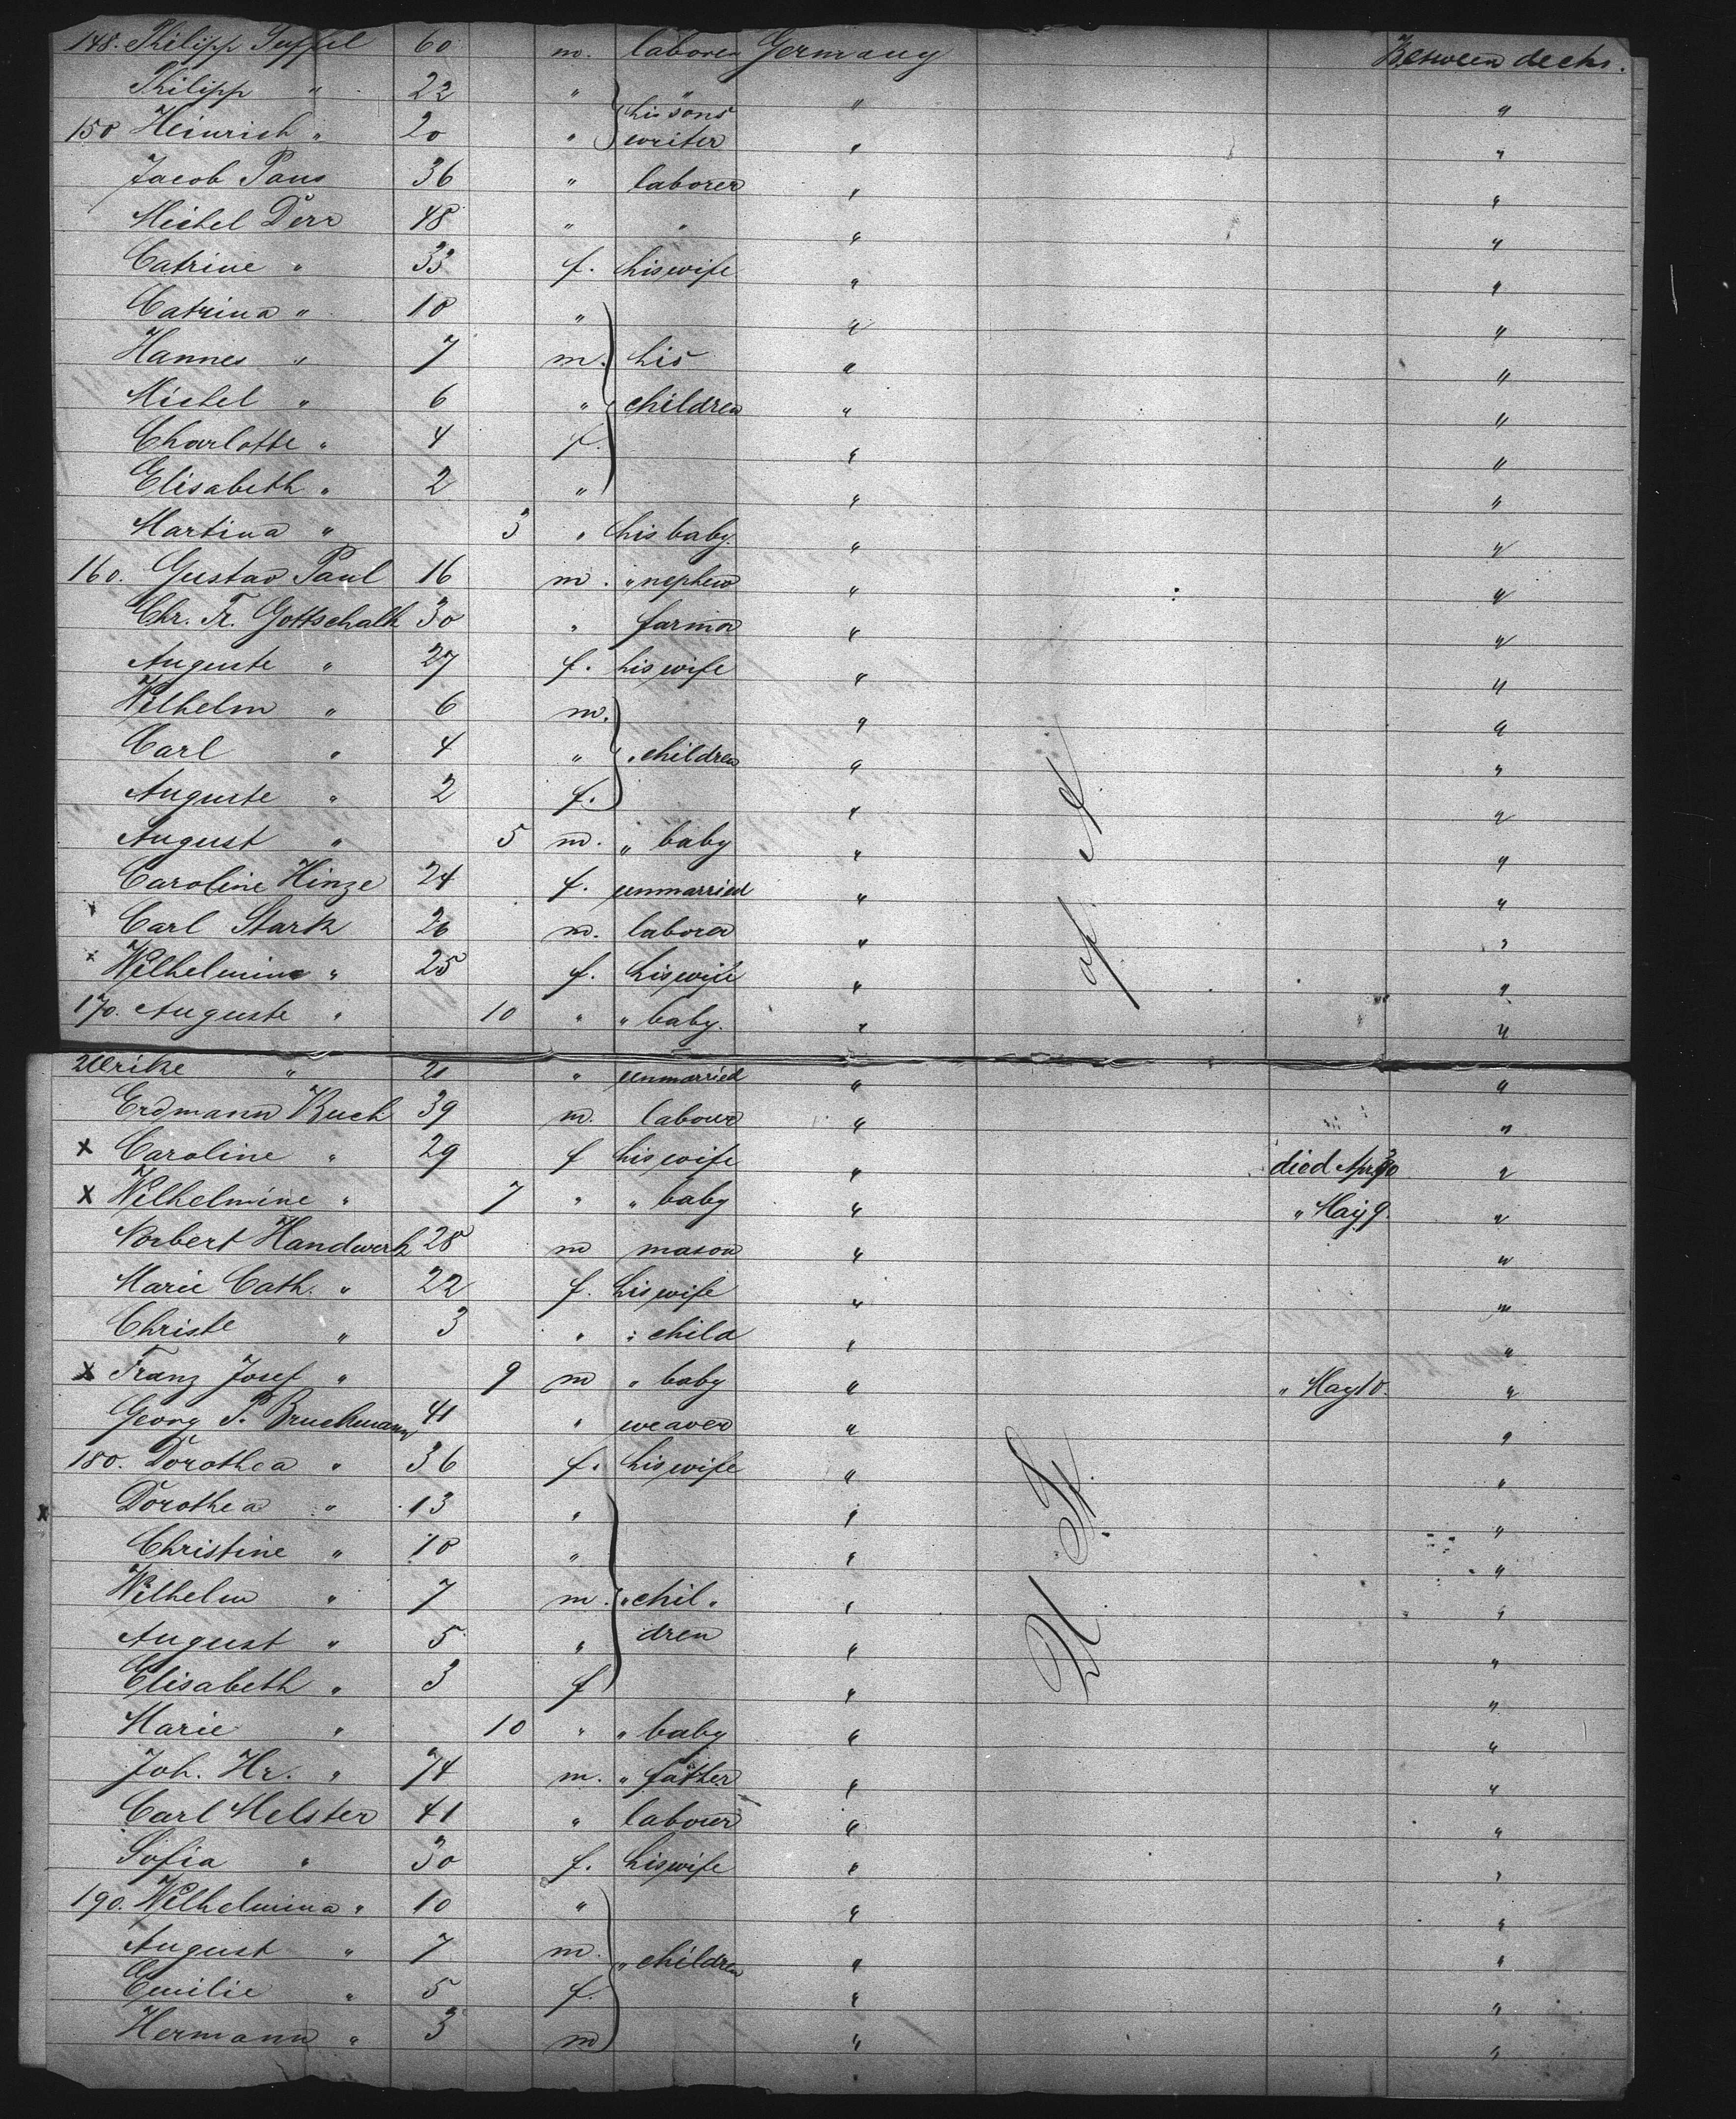 148. Philipp Suffel 60 m. laborer Germany Between decks.
Philipp " 22 " " "
his sons
150 Heinrich " 20 " writer " "
Jacob Paus 36 " laborer " "
Michel Derr 48 " " " "
Catrine " 33 f. his wife " "
Catrina " 10 " " "
Hannes " 7 m. his " "
Michel " 6 " children " "
Charlotte " 4 f. " "
Elisabeth " 2 " " "
Martina " 3 " his baby. " "
160. Gustav Paul 16 m. " nephew " "
Chr. Fr. Gottschalk 30 " farmer " "
Auguste " 27 f. his wife " "
Wilhelm " 6 m. " "
Carl " 4 " " children " "
Auguste " 2 f. " "
August " 5 m. " baby " "
Caroline Hinze 24 f. unmarried " "
Carl Stark 26 m. laborer " "
x Wilhelmine " 25 f. his wife " "
170. Auguste " 10 " " baby. " "
Ulrike " 21 " unmarried " "
Erdmann Buch 39 m. labourer " "
x Caroline " 29 f his wife " died Apr 30 "
x Wilhelmine " 7 " " baby " " May 9. "
Norbert Handwerk 28 m mason " "
Marie Cath. " 22 f. his wife " "
Christe " 3 " " child " "
x Franz Josef " 9 m " baby " " May 10. "
Georg P. Bruckmann 41 " weaver " "
180. Dorothea " 36 f. his wife " "
x Dorothea " 13 " " "
Christine " 10 " " "
Wilhelm " 7 m. " chil " " "
August " 5 " dren " "
Elisabeth " 3 f " "
Marie " 10 " " baby " "
Joh. Hr. " 74 m. " father " "
Carl Melster 41 " labourer " "
Sofia " 30 f. his wife " "
190. Wilhelmina " 10 " " "
August " 7 m. " children " "
Emilie " 5 f. " "
Hermann " 3 m " "
U. St. of A.